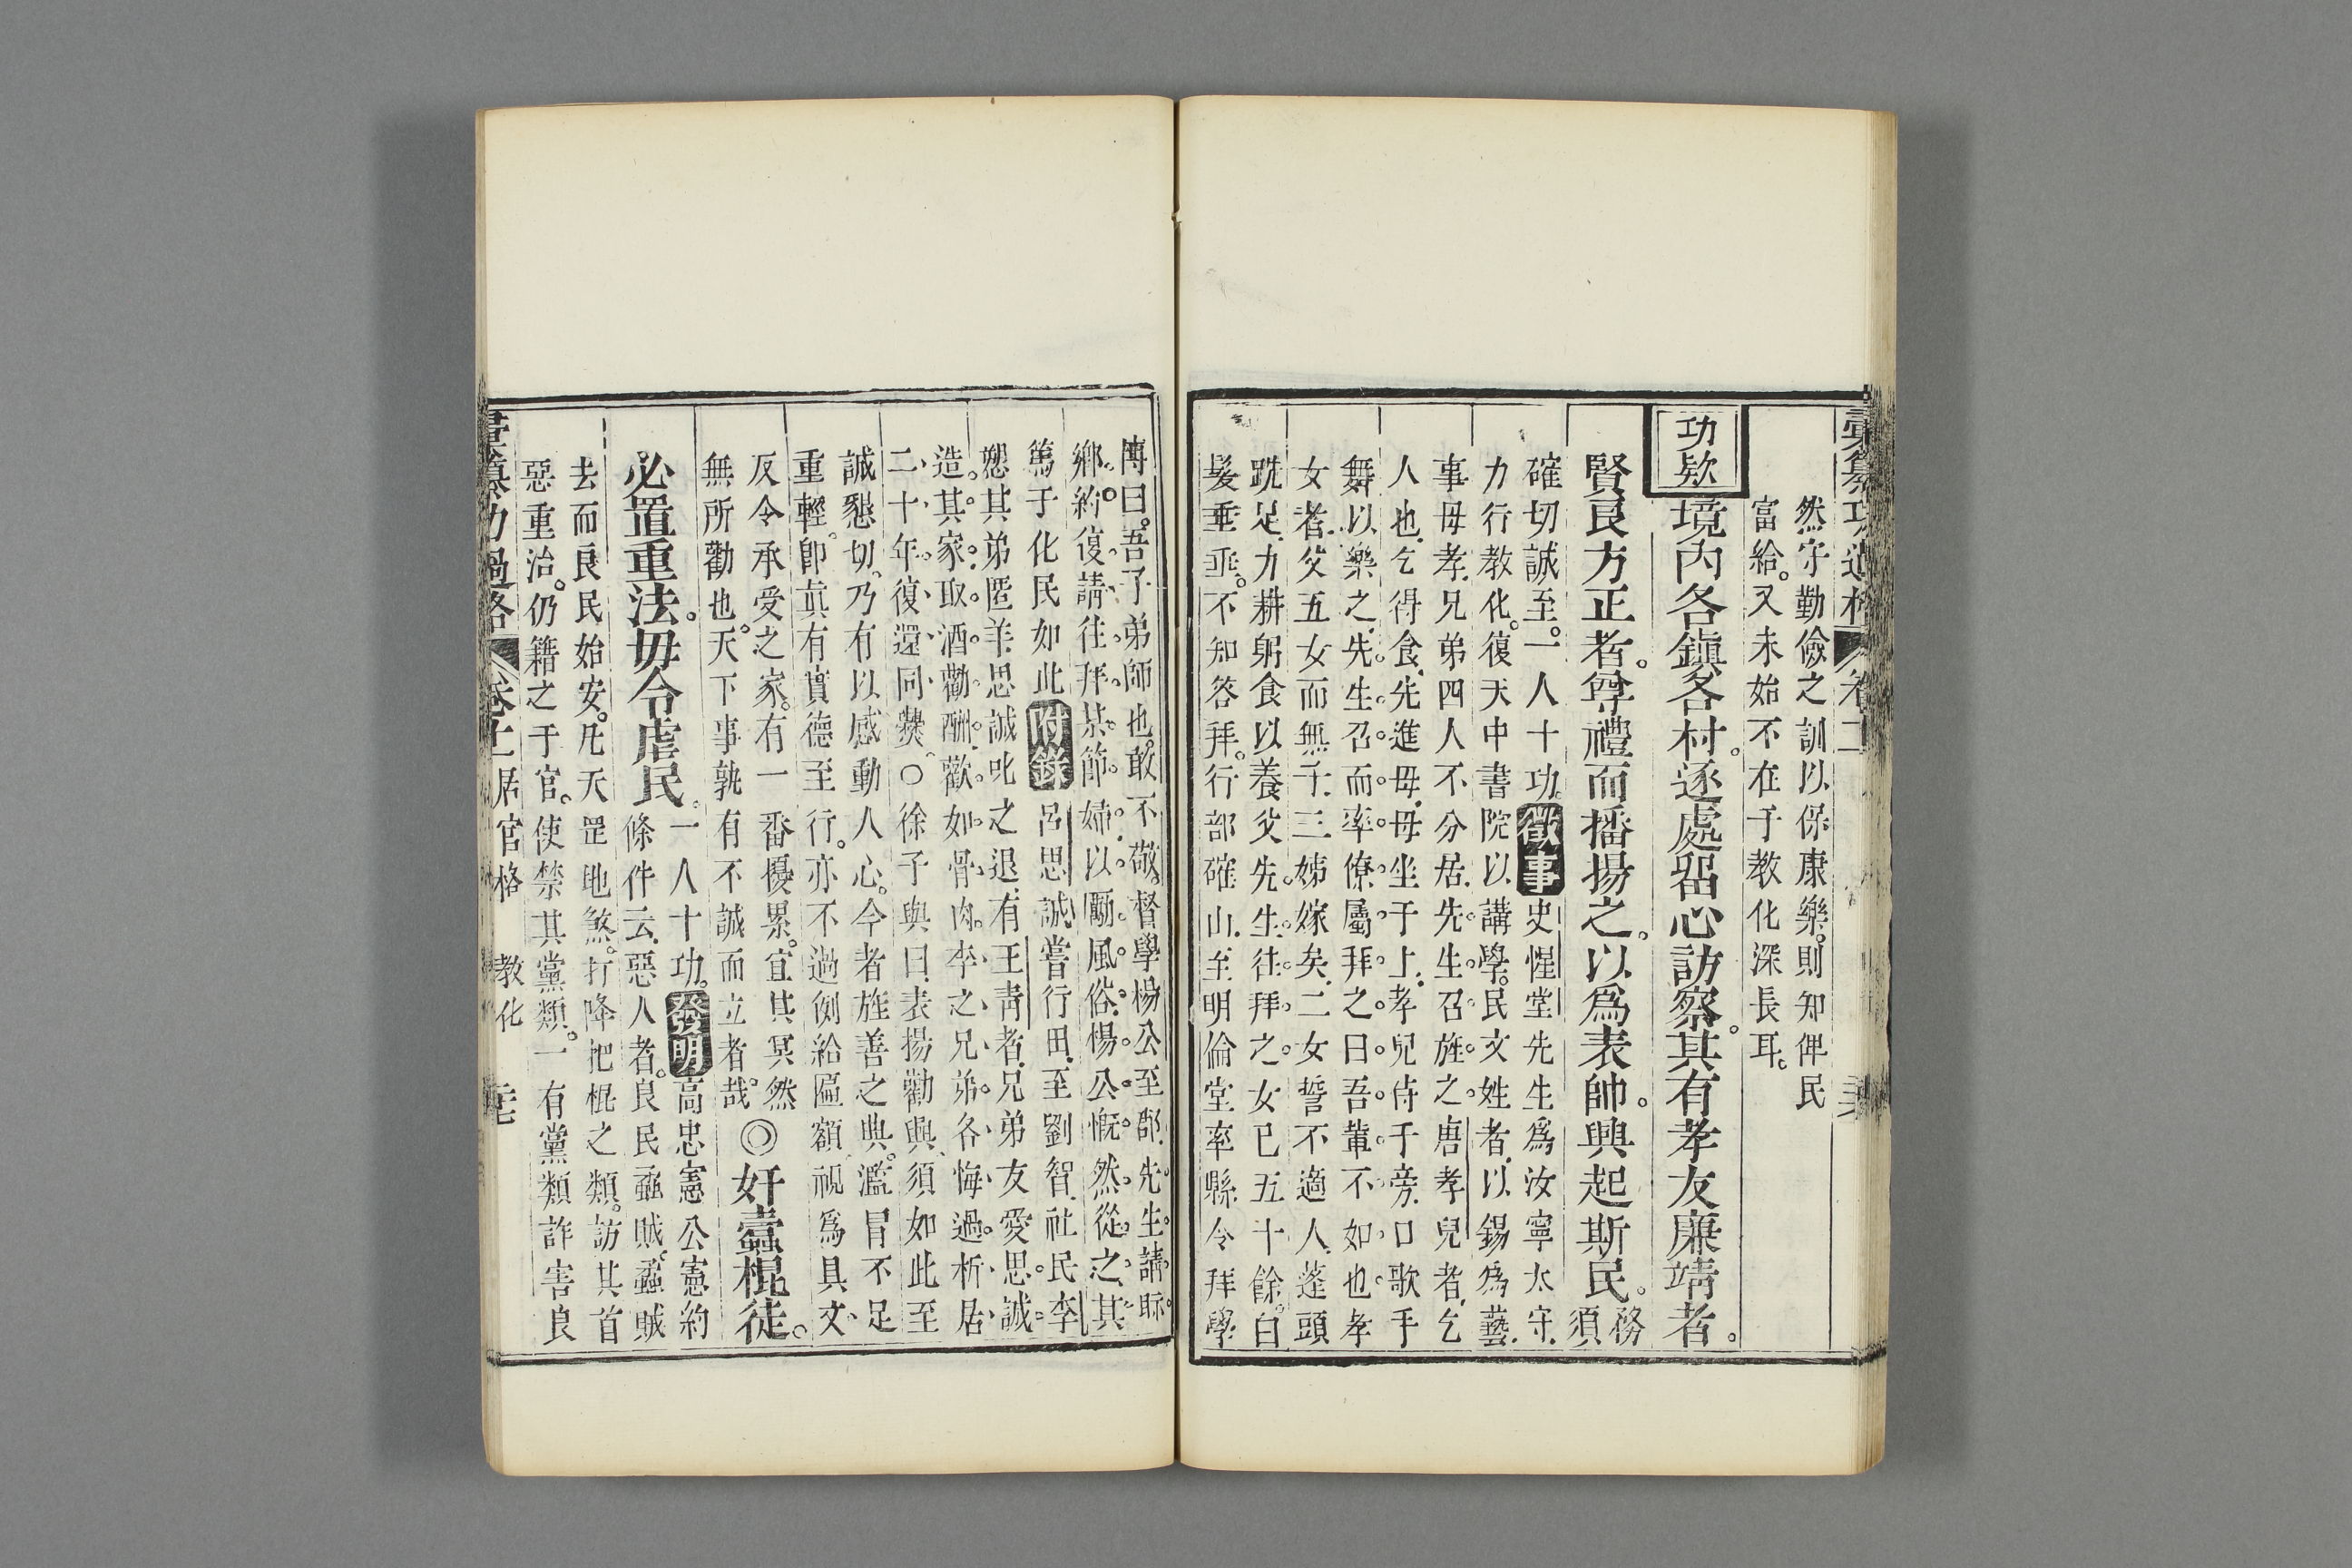 彙纂功過格
然守勤儉之訓以保康樂則知俾民
富給。又未始不在于教化深長耳。
功款
境內各鎮各村。逐處留心訪察。其有孝友廉靖者。
賢良方正者。尊禮而播揚之。以爲表帥。興起斯民。務須
確切誠至。一人十功。徵事史惺堂先生爲汝寧太守.
力行教化。復天中書院以講學。民文姓者.以錫爲藝.
事母孝.兄弟四人不分居.先生召旌之。唐孝兒者.乞
人也.乞得食.先進母.母坐于上.孝兒侍于旁.口歌手
舞以樂之.先生召而率僚屬拜之曰吾輩不如也孝
女者.父五女而無子.三姊嫁矣.二女誓不適人.蓬頭
跣足.力耕躬食以養父先生往拜之女已五十餘。白
髮垂垂。不知答拜。行部確山.至明倫堂率縣令拜學
博曰。吾子弟師也.敢不敬。督學楊公至郡.先生請眎
鄉約。復請往拜某節婦.以勵風俗.楊公慨然從之.其
篤于化民如此附錄呂思誠嘗行田.至劉智社民李
愬其弟匿羊思誠叱之退.有王青者.兄弟友愛思誠
造其家.取酒勸酬.歡如骨肉.李之兄弟各悔過析居
二十年.復還同爨.○徐子與曰.表揚勸興.須如此至
誠懇切.乃有以感動人心。今者旌善之典。濫冒不足
重輕.卽眞有實德至行.亦不過例給匾額.視爲具文.
反令承受之家.有一番擾累。宜其冥然
無所勸也.天下事孰有不誠而立者哉。◎奸蠹棍徒。
必置重法。毋令虐民。一人十功。發明高忠憲公憲約
條件云.惡人者。良民蝨賊。蝨賊
去而良民始安。凡天罡地煞.打降把棍之類.訪其首
惡重治。仍籍之于官.使禁其黨類。一有黨類詐害良
彙纂功過格 卷十二 居官格 教化